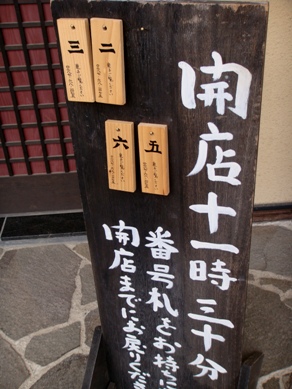 開店十一時三十分
番号札をお持に
開店までにお戻りくださ
二
三
五
六